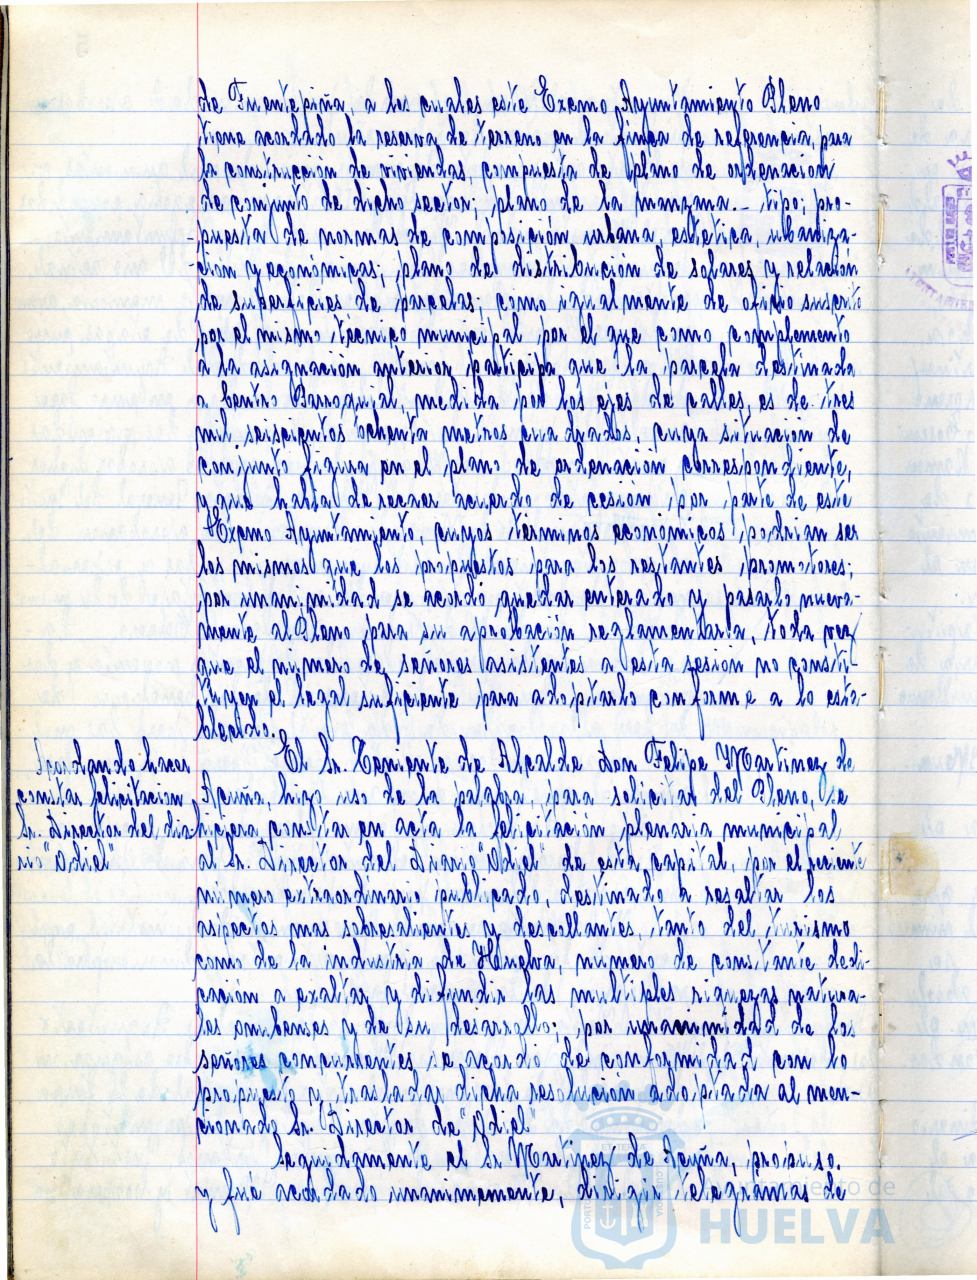 de Fuentepiña, a los cuales este Excmo Ayuntamiento Pleno
tiene acordado la reserva de terreno en la finca de referencia, para
la construcción de viviendas, compuesta de plano de ordenación
de conjunto de dicho sector; plano de la manzana.- tipo; pro-
puesta de normas de composición urbana, estetica, urbaniza-
ción y económicas; plano de distribución de solares y relación
de superficies de parcelas; como igualmente de oficio suscrito
por el mismo técnico municipal, por el que como complemento
a la asignación anterior, participa que la parcela destinada
a Centro Parroquial, medida por los ejes de calles, es de tres
mil seiscientos ochenta metros cuadrados, cuya situación de
conjunto figura en el plano de ordenación correspondiente,
y que habrá de recaer acuerdo de cesión por parte de este
Excmo Ayuntamiento, cuyos términos económicos podrian ser
los mismos que los propuestos para los restantes promotores;
por unanimidad se acordó quedar enterado y pasarlo nueva-
mente al Pleno para su aprobación reglamentaria, toda vez
que el número de señores asistentes a esta sesión no consti-
tuyen el legal suficiente para adoptarlo conforme a lo esta-
blecido.
Acordando hacer
constar felicitacion
Sr. Director del dia-
rio "Odiel"
El Sr. Teniente de Alcalde Don Felipe Martinez de
Acuña, hizo uso de la palabra, para solicitar del Pleno, se
hiciera constar en acta la felicitación plenaria municipal
al Sr. Director del Diario "Odiel" de esta capital, por el reciente
número extraordinario publicado, destinado a resaltar los
aspectos mas sobresalientes y descollantes, tanto del turismo
como de la industria de Huelva, número de constante dedi-
cación a exaltar y difundir las multiples riquezas natura-
les onubenses y de su desarrollo; por unanimidad de los
señores concurrentes se acordó de conformidad con lo
propuesto y trasladar dicha resolución adoptada al men-
cionado Sr. Director de "Odiel"
Seguidamente el Sr Martinez de Acuña, propuso.
y fué acordado unanimemente, dirigir telegramas de
Ayuntamiento de
HUELVA